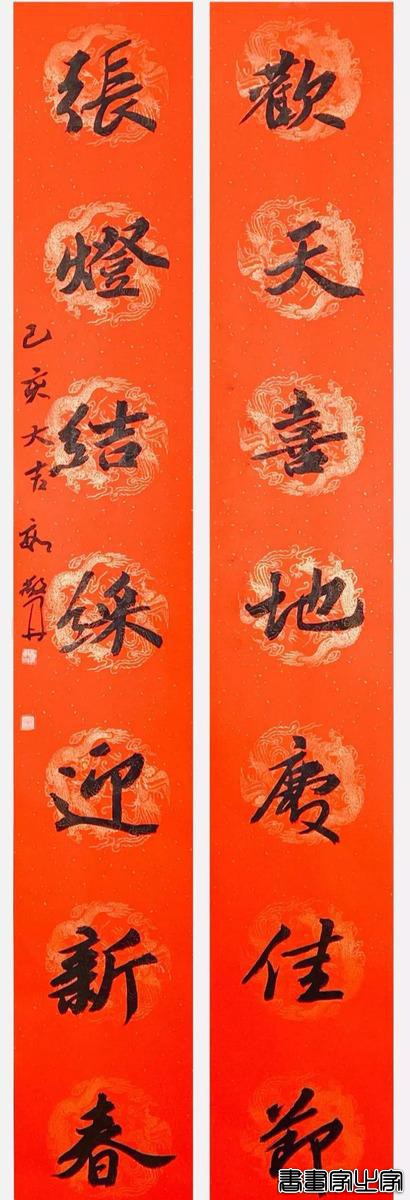 歡天喜地慶佳節
張燈結綵迎新春
己亥大吉
書畫家之家